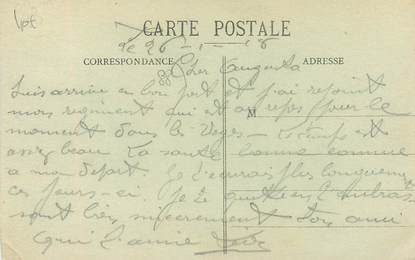 CARTE POSTALE
le 26-1-18
CORRESPONDANCE
ADRESSE
Cher Augusta
Suis arrivé en bon port et j'ai rejoint
mon regiment qui est au repos pour le
M
moment dans les Vosges - Le temps est
assez beau La santé bonne comme
a mon depart. Je t'ecrirais plus longuement
ces jours-ci Je te quitte en t'embrassant
bien sincerement Ton ami
qui t'aime